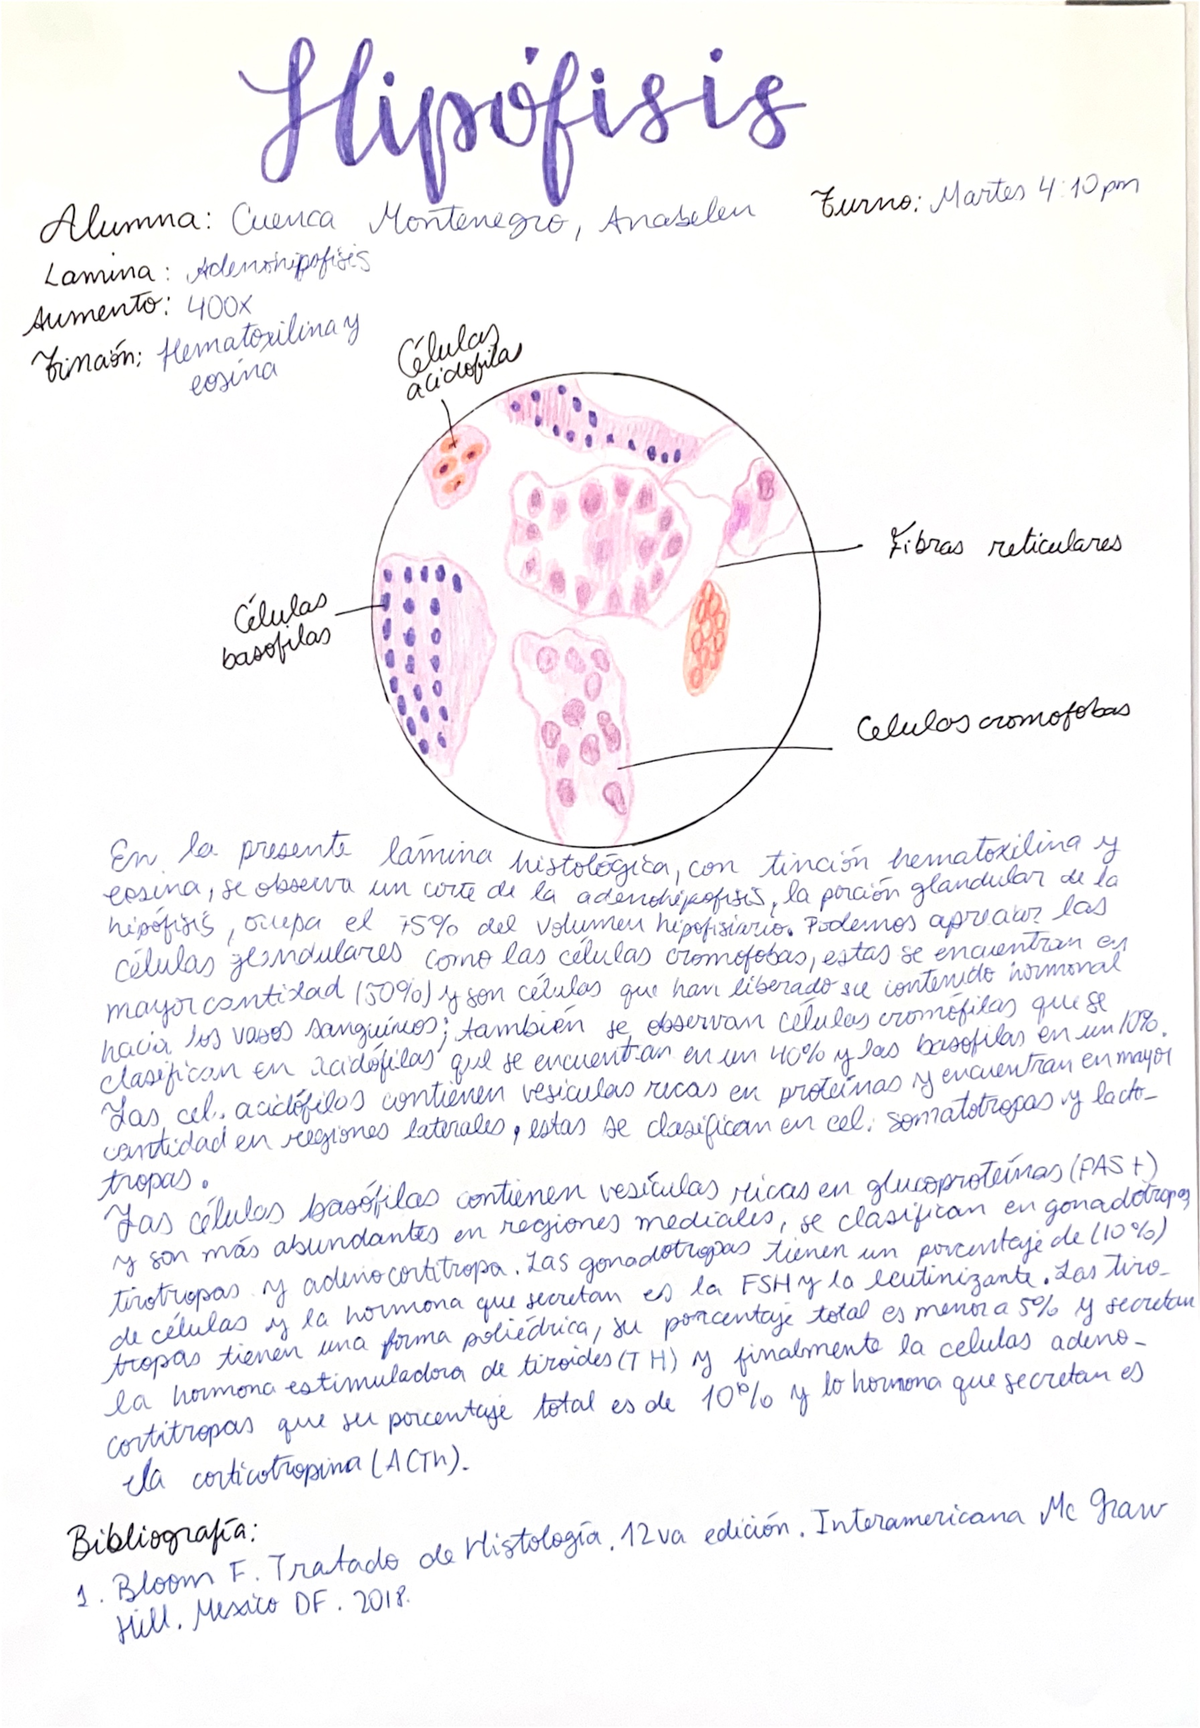 Hipófisis
Alumna: Cuenca Montenegro, Anabelen Turno: Martes 4:10pm
Lamina: Adenohipofisis
Aumento: 400x
Tinción: Hematoxilina y
eosina
Células
acidofila
Fibras reticulares
Células
basofilas
Celulas cromofobas
En la presente lámina histológica, con tinción hematoxilina y
eosina, se observa un corte de la adenohipofisis, la porción glandular de la
hipófisis, ocupa el 75% del volumen hipofisiario. Podemos apreciar las
células glandulares como las células cromofobas, estas se encuentran en
mayor cantidad (50%) y son células que han liberado su contenido hormonal
hacia los vasos sanguíneos; también se observan células cromófilas que se
clasifican en acidófilas que se encuentran en un 40% y las basofilas en un 10%.
Las cel. acidófilas contienen vesiculas ricas en proteínas y encuentran en mayor
cantidad en regiones laterales, estas se clasifican en cel. somatotropas y lacto-
tropas.
Las células basófilas contienen vesículas ricas en glucoproteínas (PAS+)
y son más abundantes en regiones mediales, se clasifican en gonadotropas
tirotropas y adenocortitropa. Las gonadotropas tienen un porcentaje de (10%)
de células y la hormona que secretan es la FSH y la leutinizante. Las tiro-
tropas tienen una forma poliédrica, su porcentaje total es menor a 5% y secretan
la hormona estimuladora de tiroides (TH) y finalmente la celulas adeno-
cortitropas que su porcentaje total es de 10% y la hormona que secretan es
la corticotropina (ACTh).
Bibliografía:
1. Bloom F. Tratado de Histología. 12va edición. Interamericana Mc Graw
Hill. Mexico DF. 2018.